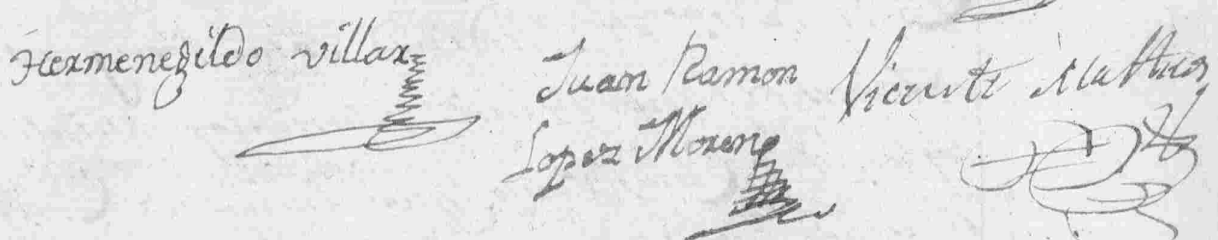 Hermenegildo villar
Juan Ramon
Lopez Moreno
Vicente